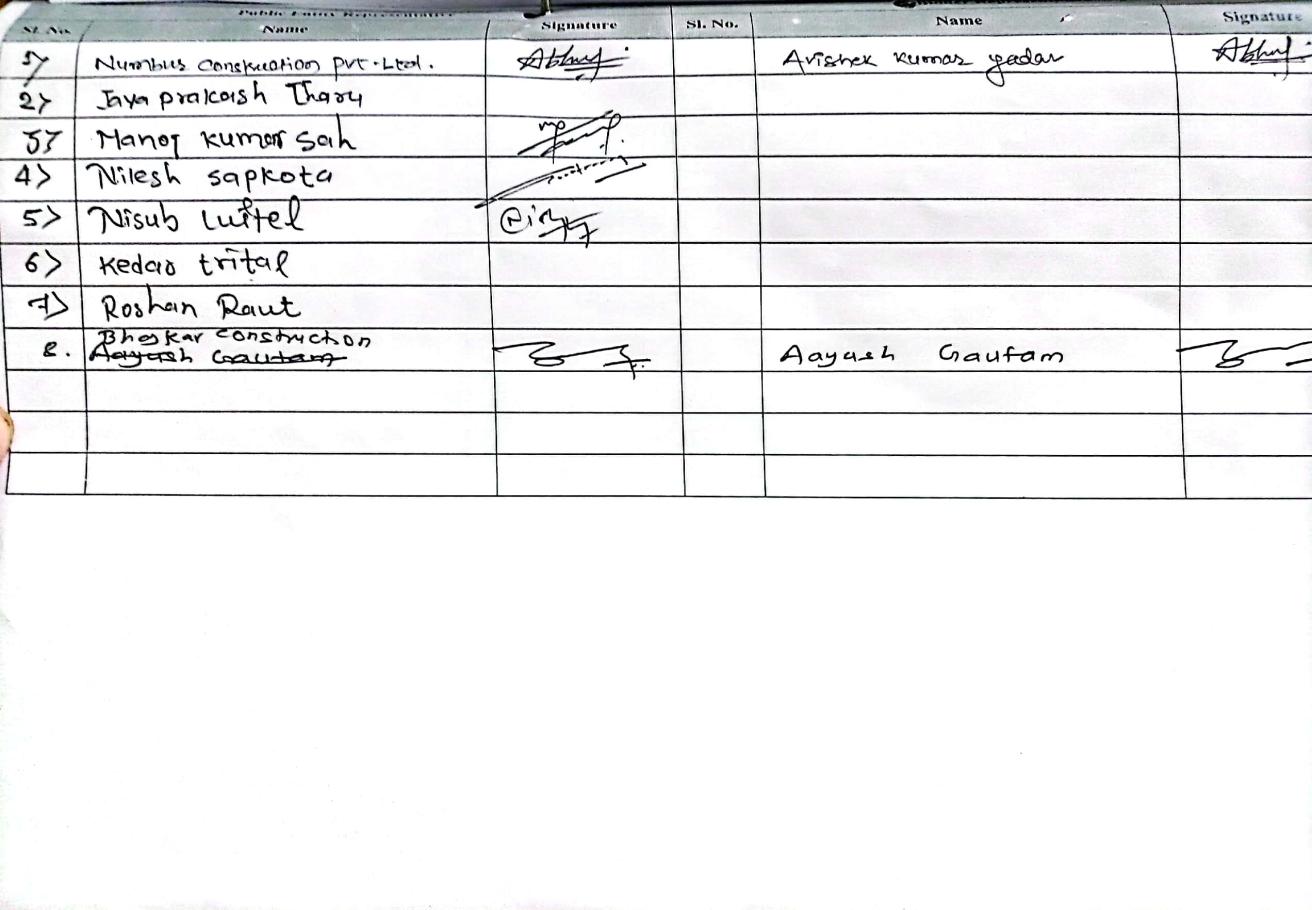 Sl. No. Name Signature Sl. No. Name Signature
1> Numbus Construction Pvt. Ltd. Avishek Kumar Yadav
2> Jaya prakash Tharu
3> Manoj Kumar Sah
4> Nilesh sapkota
5> Nisub Luitel
6> Kedar trital
7> Roshan Raut
Bhaskar Construction
8. Aayush Gautam Aayush Gautam